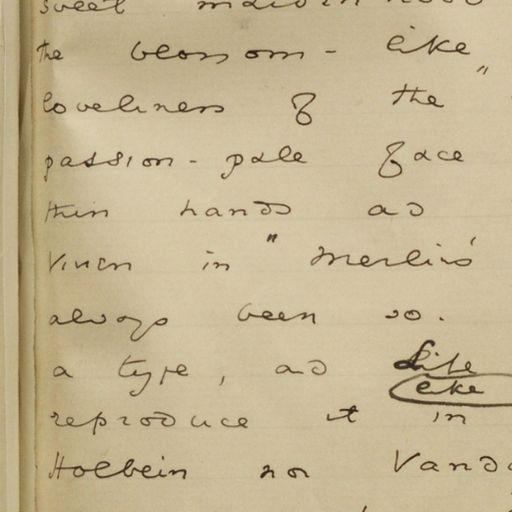 sweet maiden hood
the blossom - like
loveliness of the "
passion - pale face
thin hands as
Vivien in "Merlin's
always been so.
a type, as Life
like
reproduce it in
Holbein nor Vand